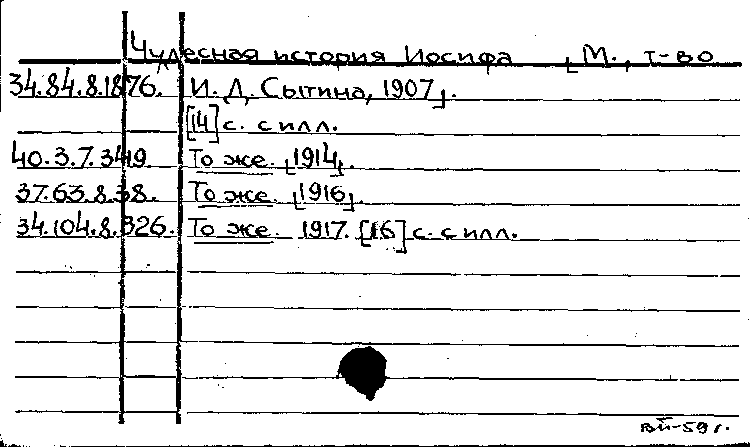 Чудесная история Иосифа ⌊М., т-во
34.84.8.1876. И. Д. Сытина, 1907⌋.
[14] с. с илл.
40.3.7.349. То же. ⌊1914⌋.
37.63.8.38. То же. ⌊1916⌋.
34.104.8.326. То же. 1917. [16] с. с илл.
вй-59 г.